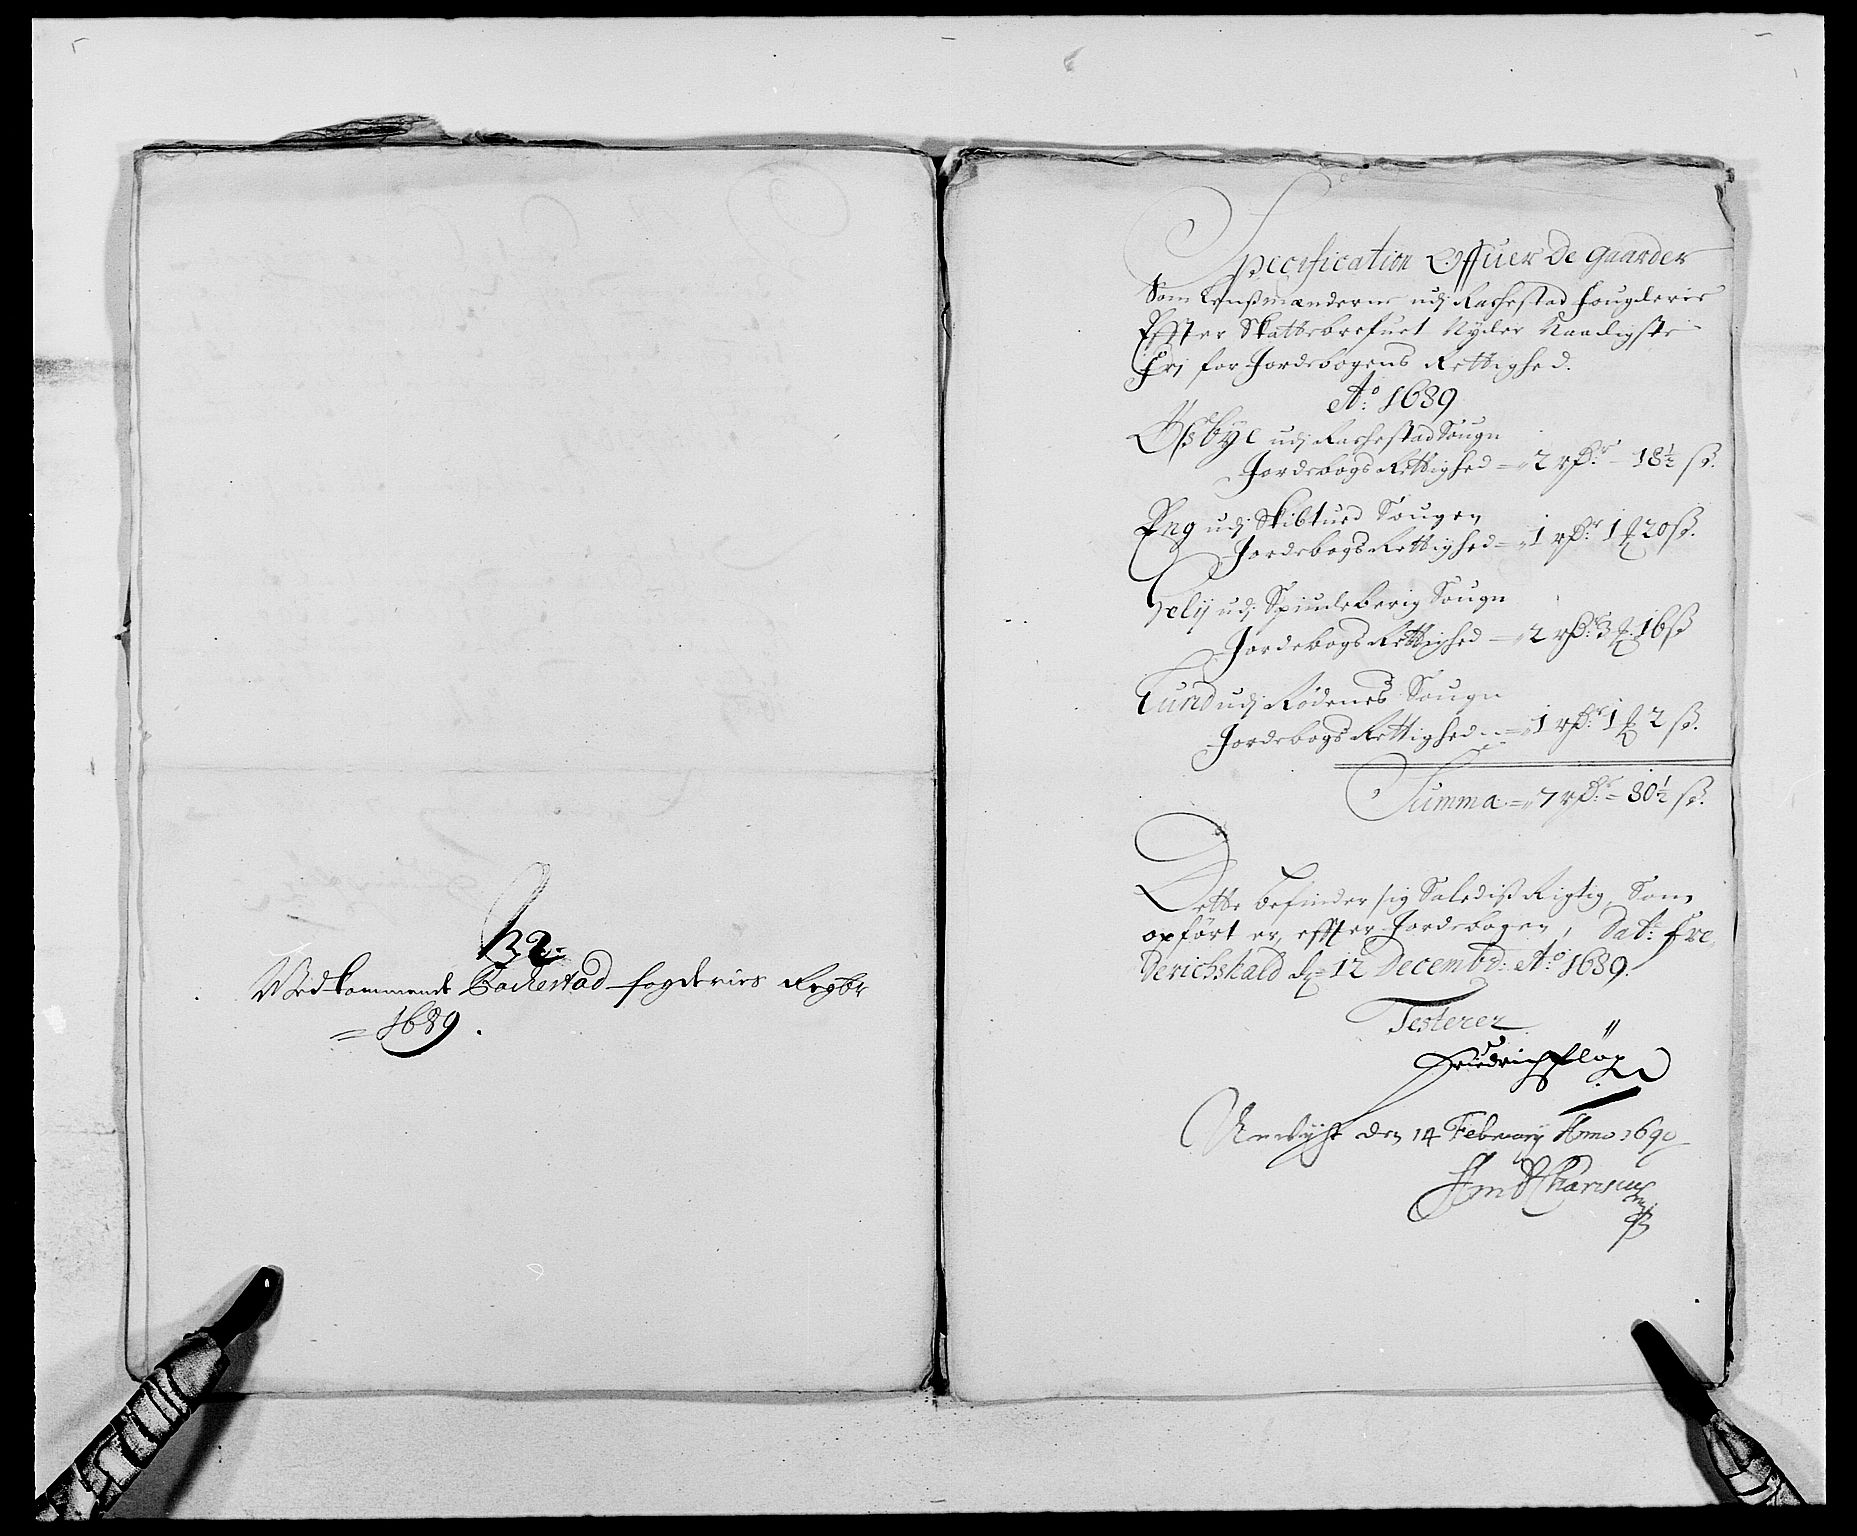 32:
Vedkommende Rackestad fogderies Regbr
1689.
Specification Offuer De Gaarder
Som Lensmænderne udj Rachestad fougderie
Effter Skattebrefuet Nyder Naadigste
frj for Jordebogens Rettighed.
Ao: 1689
udj Rachestad Sougn
Jordebogs Rettighed = 2 rdr - 18½ ß.
Eng udj Skibtued Sougen
Jordebogs Rettighed = 1 rdr: 1 ₰ 20 ß.
udj Spiudeberig Sougn
Jordebogs Rettighed = 2 rdr: 3 ₰ 16 ß
Lund udj Rødenes Sougn
Jordebogs Rettighed = 1 rdr: 1 ₰ 2 ß.
Summa = 7 rdr: = 80½ ß.
Dette befinder sig Saledis Rigtig, Som
opført er, effter Jordebogen, Dat: Fre,
derichshald d. 12 Decembr: Ao: 1689.
Testerer
den 14 February Anno 1690